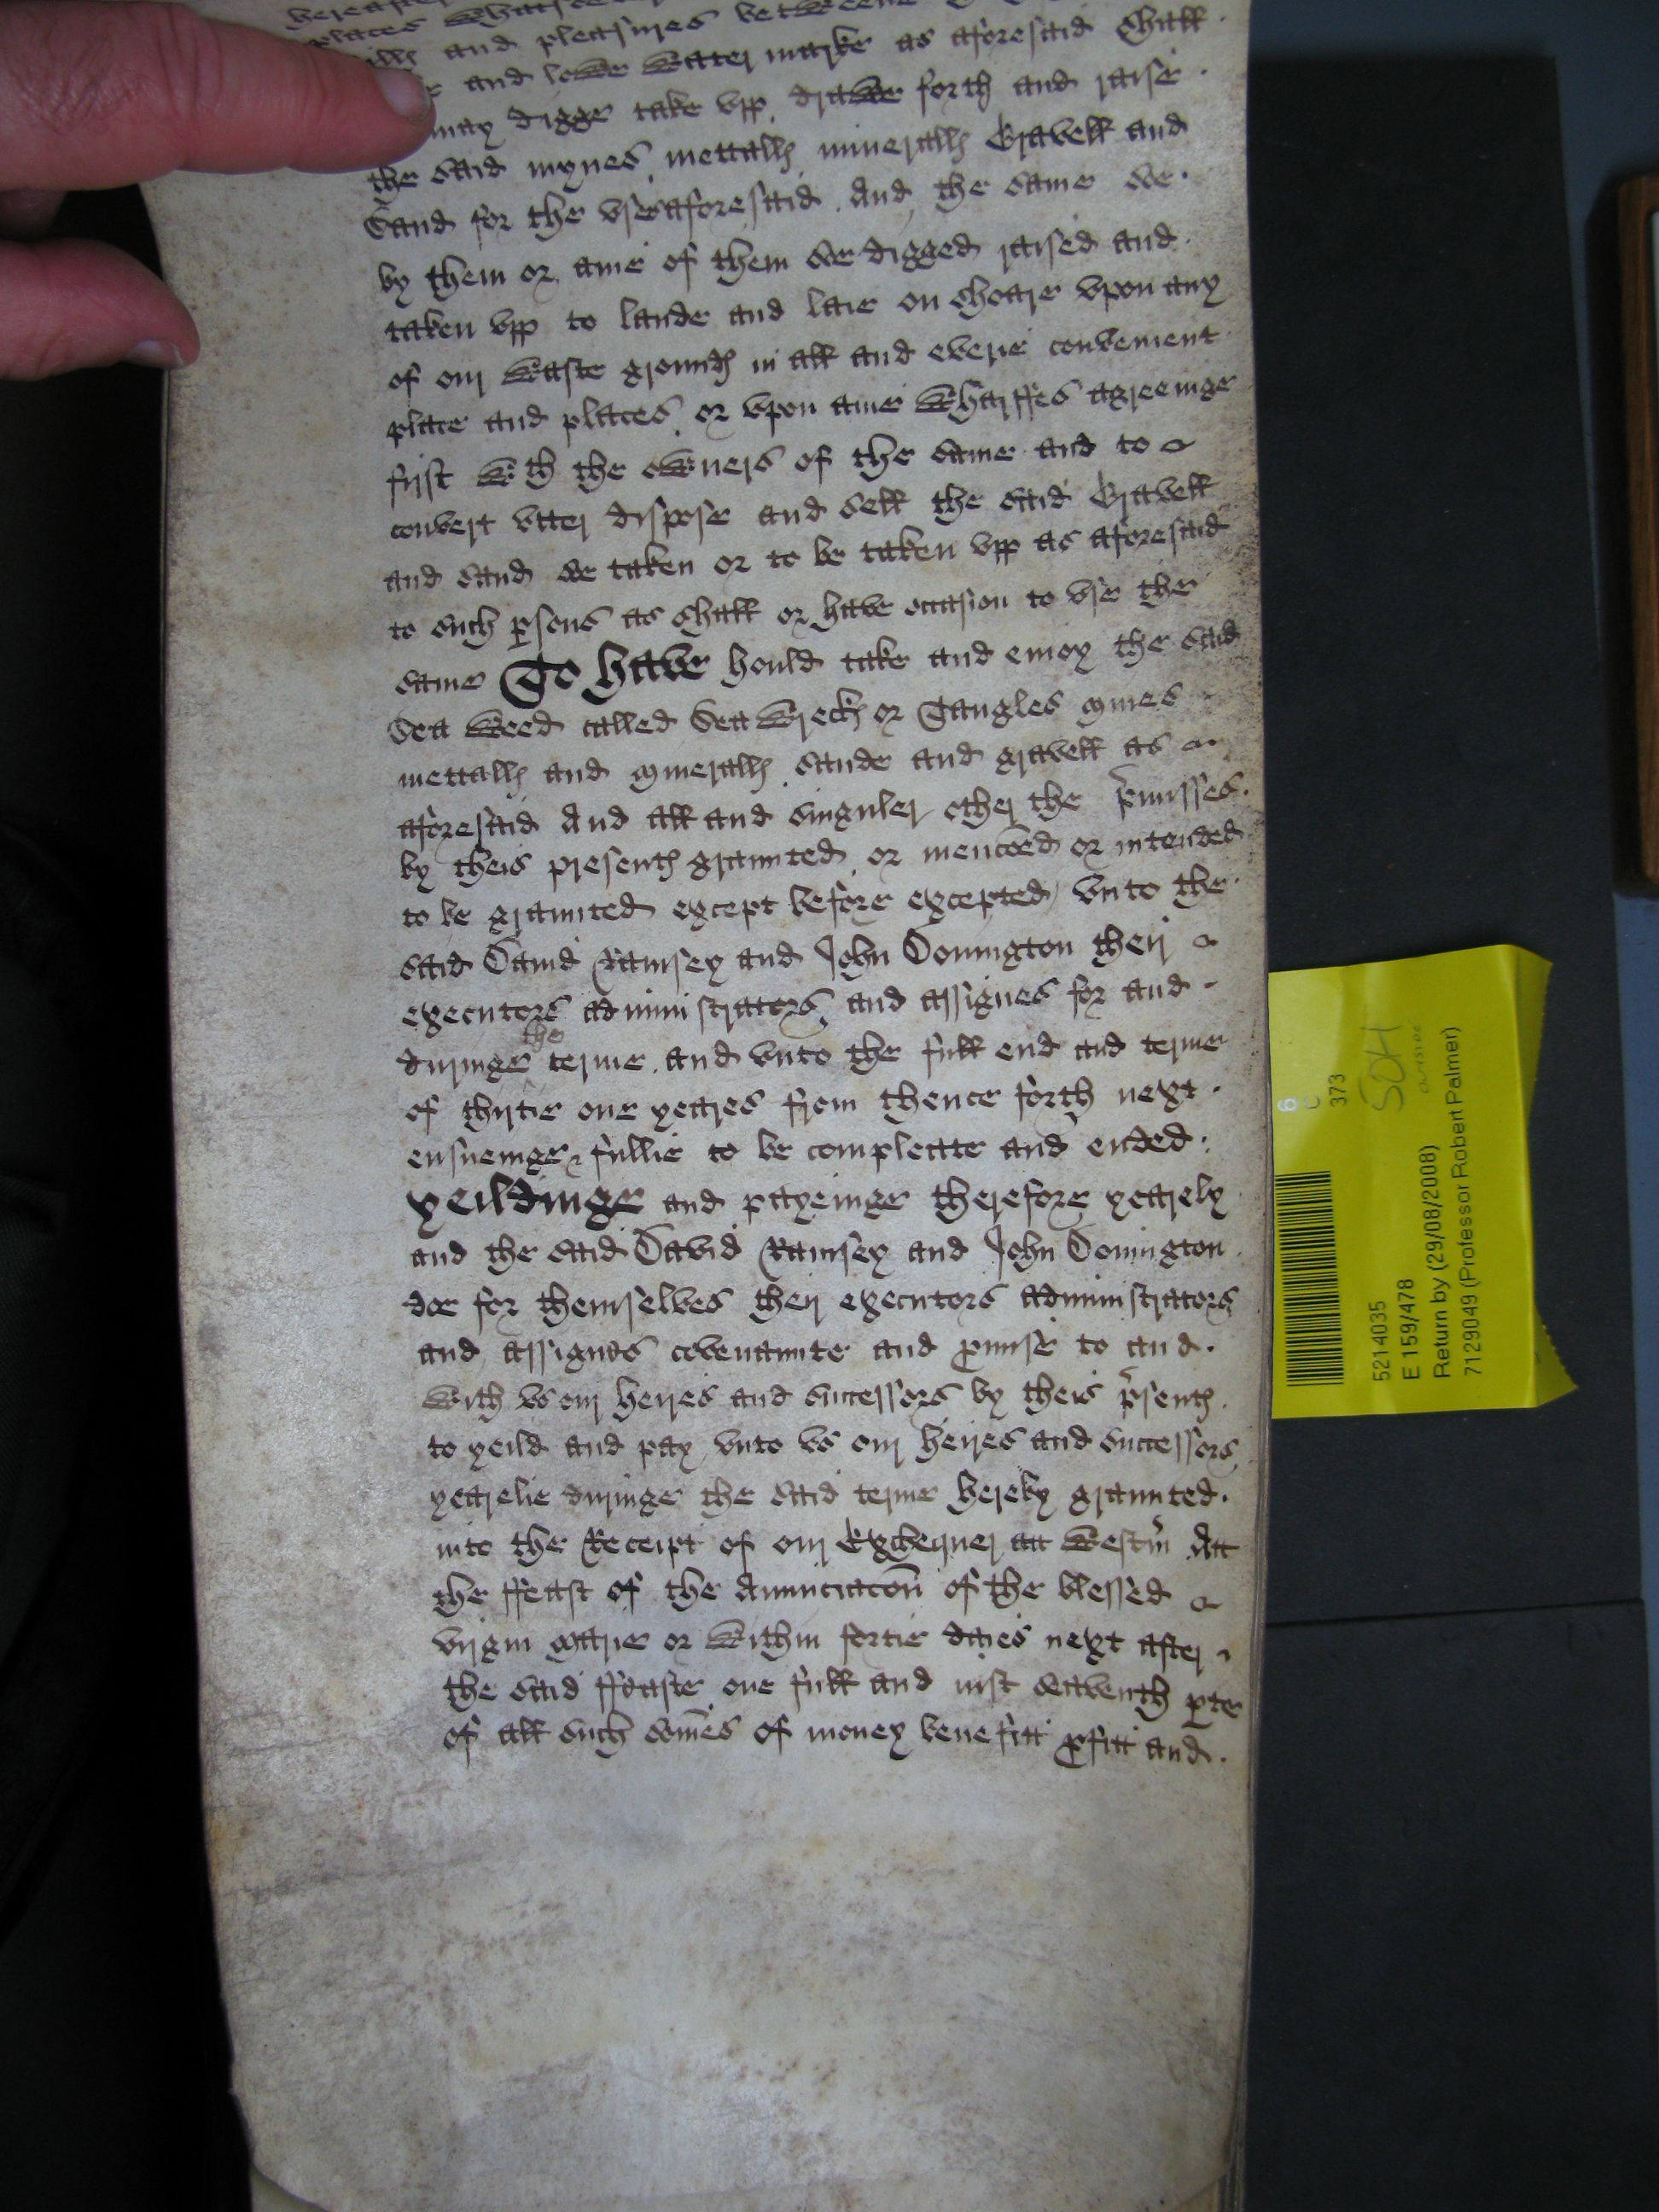 places whatsoever
and pleasures betweene
and lowe water marke as aforesaid shall
may digge take vpp drawe forth and raise
the said mynes mettalls mineralls Gravell and
Sand for the vse aforesaid And the same soe
by them or anie of them soe digged raised and
taken vpp to lande and laie on shoare vpon any
of our waste grounds in all and everie convenient
place and places or vpon anie wharffes agreeinge
first wth the owners of the same and to
convert vtter dispose and sell the said Gravell
and sand soe taken or to be taken vpp as aforesaid
to such psons as shall or have occasion to vse the
same To have hould take and enioy the said
Sea weed called Sea wrecks or Tangles mines
mettalls and mineralls sande and gravell as
aforesaid And all and singuler other the pmisses
by theis presents graunted or mencoed or intended
to be graunted except before excepted vnto the
said David Ramsey and John Donington their
executors administrators and assignes for and
duringe the terme and vnto the full end and terme
of thirtie one yeares from thence forth next
ensueinge fullie to be compleate and ended
yeildinge and payeinge therefore yearely
and the said David Ramsey and John Donington
doe for themselves their executors administrators
and assignes covenannte and pmise to and
with vs our heires and successors by theis psents
to yeild and pay vnto vs our heires and successors
yearelie duringe the said terme hereby graunted
into the Receipt of our Exchequer att Westm Att
the ffeast of the Annunciacon of the blessed
virgin marie or within fortie daies next after
the said ffeaste one full and iust seaventh pte
of all such somes of money benefitt pfitt and
6
C
373
SOH
5214035
E 159/478
Return by (29/08/2008)
7129049 (Professor Robert Palmer)